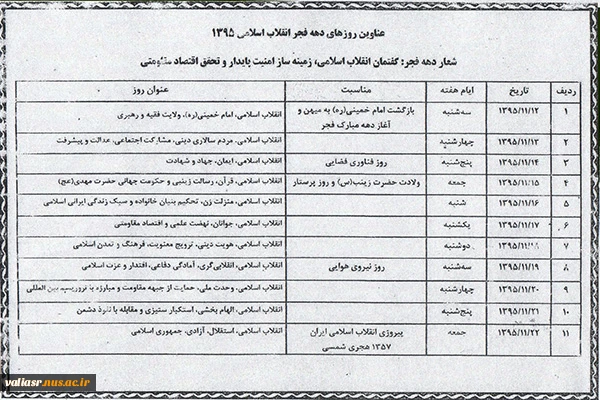 عناوین روزهای دهه فجر انقلاب اسلامی ۱۳۹۵
شعار دهه فجر: گفتمان انقلاب اسلامی، زمینه ساز امنیت پایدار و تحقق اقتصاد مقاومتی
ردیف تاریخ ایام هفته مناسبت عنوان روز
۱ ۱۳۹۵/۱۱/۱۲ سه‌شنبه بازگشت امام خمینی(ره) به میهن و آغاز دهه مبارک فجر انقلاب اسلامی، امام خمینی(ره)، ولایت فقیه و رهبری
۲ ۱۳۹۵/۱۱/۱۳ چهارشنبه انقلاب اسلامی، مردم سالاری دینی، مشارکت اجتماعی، عدالت و پیشرفت
۳ ۱۳۹۵/۱۱/۱۴ پنج‌شنبه روز فناوری فضایی انقلاب اسلامی، ایمان، جهاد و شهادت
۴ ۱۳۹۵/۱۱/۱۵ جمعه ولادت حضرت زینب(س) و روز پرستار انقلاب اسلامی، قرآن، رسالت زینبی و حکومت جهانی حضرت مهدی(عج)
۵ ۱۳۹۵/۱۱/۱۶ شنبه انقلاب اسلامی، منزلت زن، تحکیم بنیان خانواده و سبک زندگی ایرانی اسلامی
۶ ۱۳۹۵/۱۱/۱۷ یکشنبه انقلاب اسلامی، جوانان، نهضت علمی و اقتصاد مقاومتی
۷ ۱۳۹۵/۱۱/۱۸ دوشنبه انقلاب اسلامی، هویت دینی، ترویج معنویت، فرهنگ و تمدن اسلامی
۸ ۱۳۹۵/۱۱/۱۹ سه‌شنبه روز نیروی هوایی انقلاب اسلامی، انقلابی‌گری، آمادگی دفاعی، اقتدار و عزت اسلامی
۹ ۱۳۹۵/۱۱/۲۰ چهارشنبه انقلاب اسلامی، وحدت ملی، حمایت از جبهه مقاومت و مبارزه با تروریسم بین المللی
۱۰ ۱۳۹۵/۱۱/۲۱ پنج‌شنبه انقلاب اسلامی، الهام بخشی، استکبار ستیزی و مقابله با نفوذ دشمن
۱۱ ۱۳۹۵/۱۱/۲۲ جمعه پیروزی انقلاب اسلامی ایران ۱۳۵۷ هجری شمسی انقلاب اسلامی، استقلال، آزادی، جمهوری اسلامی
valiasr.nus.ac.ir